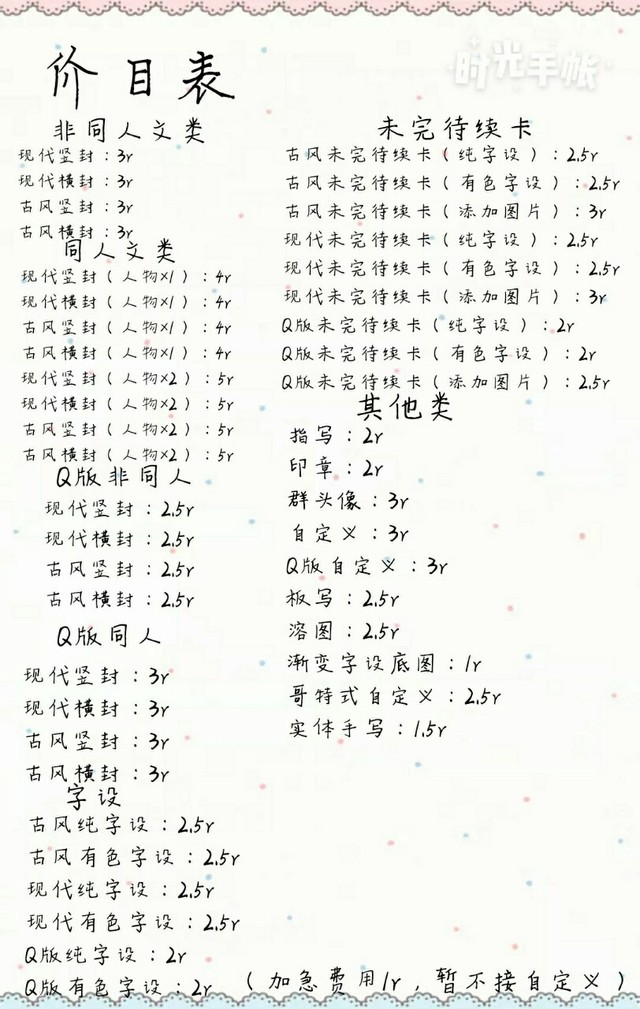 时光手帐
价目表
非同人文类
现代竖封：3r
现代横封：3r
古风竖封：3r
古风横封：3r
同人文类
现代竖封（人物×1）：4r
现代横封（人物×1）：4r
古风竖封（人物×1）：4r
古风横封（人物×1）：4r
现代竖封（人物×2）：5r
现代横封（人物×2）：5r
古风竖封（人物×2）：5r
古风横封（人物×2）：5r
Q版非同人
现代竖封：2.5r
现代横封：2.5r
古风竖封：2.5r
古风横封：2.5r
Q版同人
现代竖封：3r
现代横封：3r
古风竖封：3r
古风横封：3r
字设
古风纯字设：2.5r
古风有色字设：2.5r
现代纯字设：2.5r
现代有色字设：2.5r
Q版纯字设：2r
Q版有色字设：2r
未完待续卡
古风未完待续卡（纯字设）：2.5r
古风未完待续卡（有色字设）：2.5r
古风未完待续卡（添加图片）：3r
现代未完待续卡（纯字设）：2.5r
现代未完待续卡（有色字设）：2.5r
现代未完待续卡（添加图片）：3r
Q版未完待续卡（纯字设）：2r
Q版未完待续卡（有色字设）：2r
Q版未完待续卡（添加图片）：2.5r
其他类
指写：2r
印章：2r
群头像：3r
自定义：3r
Q版自定义：3r
板写：2.5r
溶图：2.5r
渐变字设底图：1r
哥特式自定义：2.5r
实体手写：1.5r
（加急费用1r，暂不接自定义）